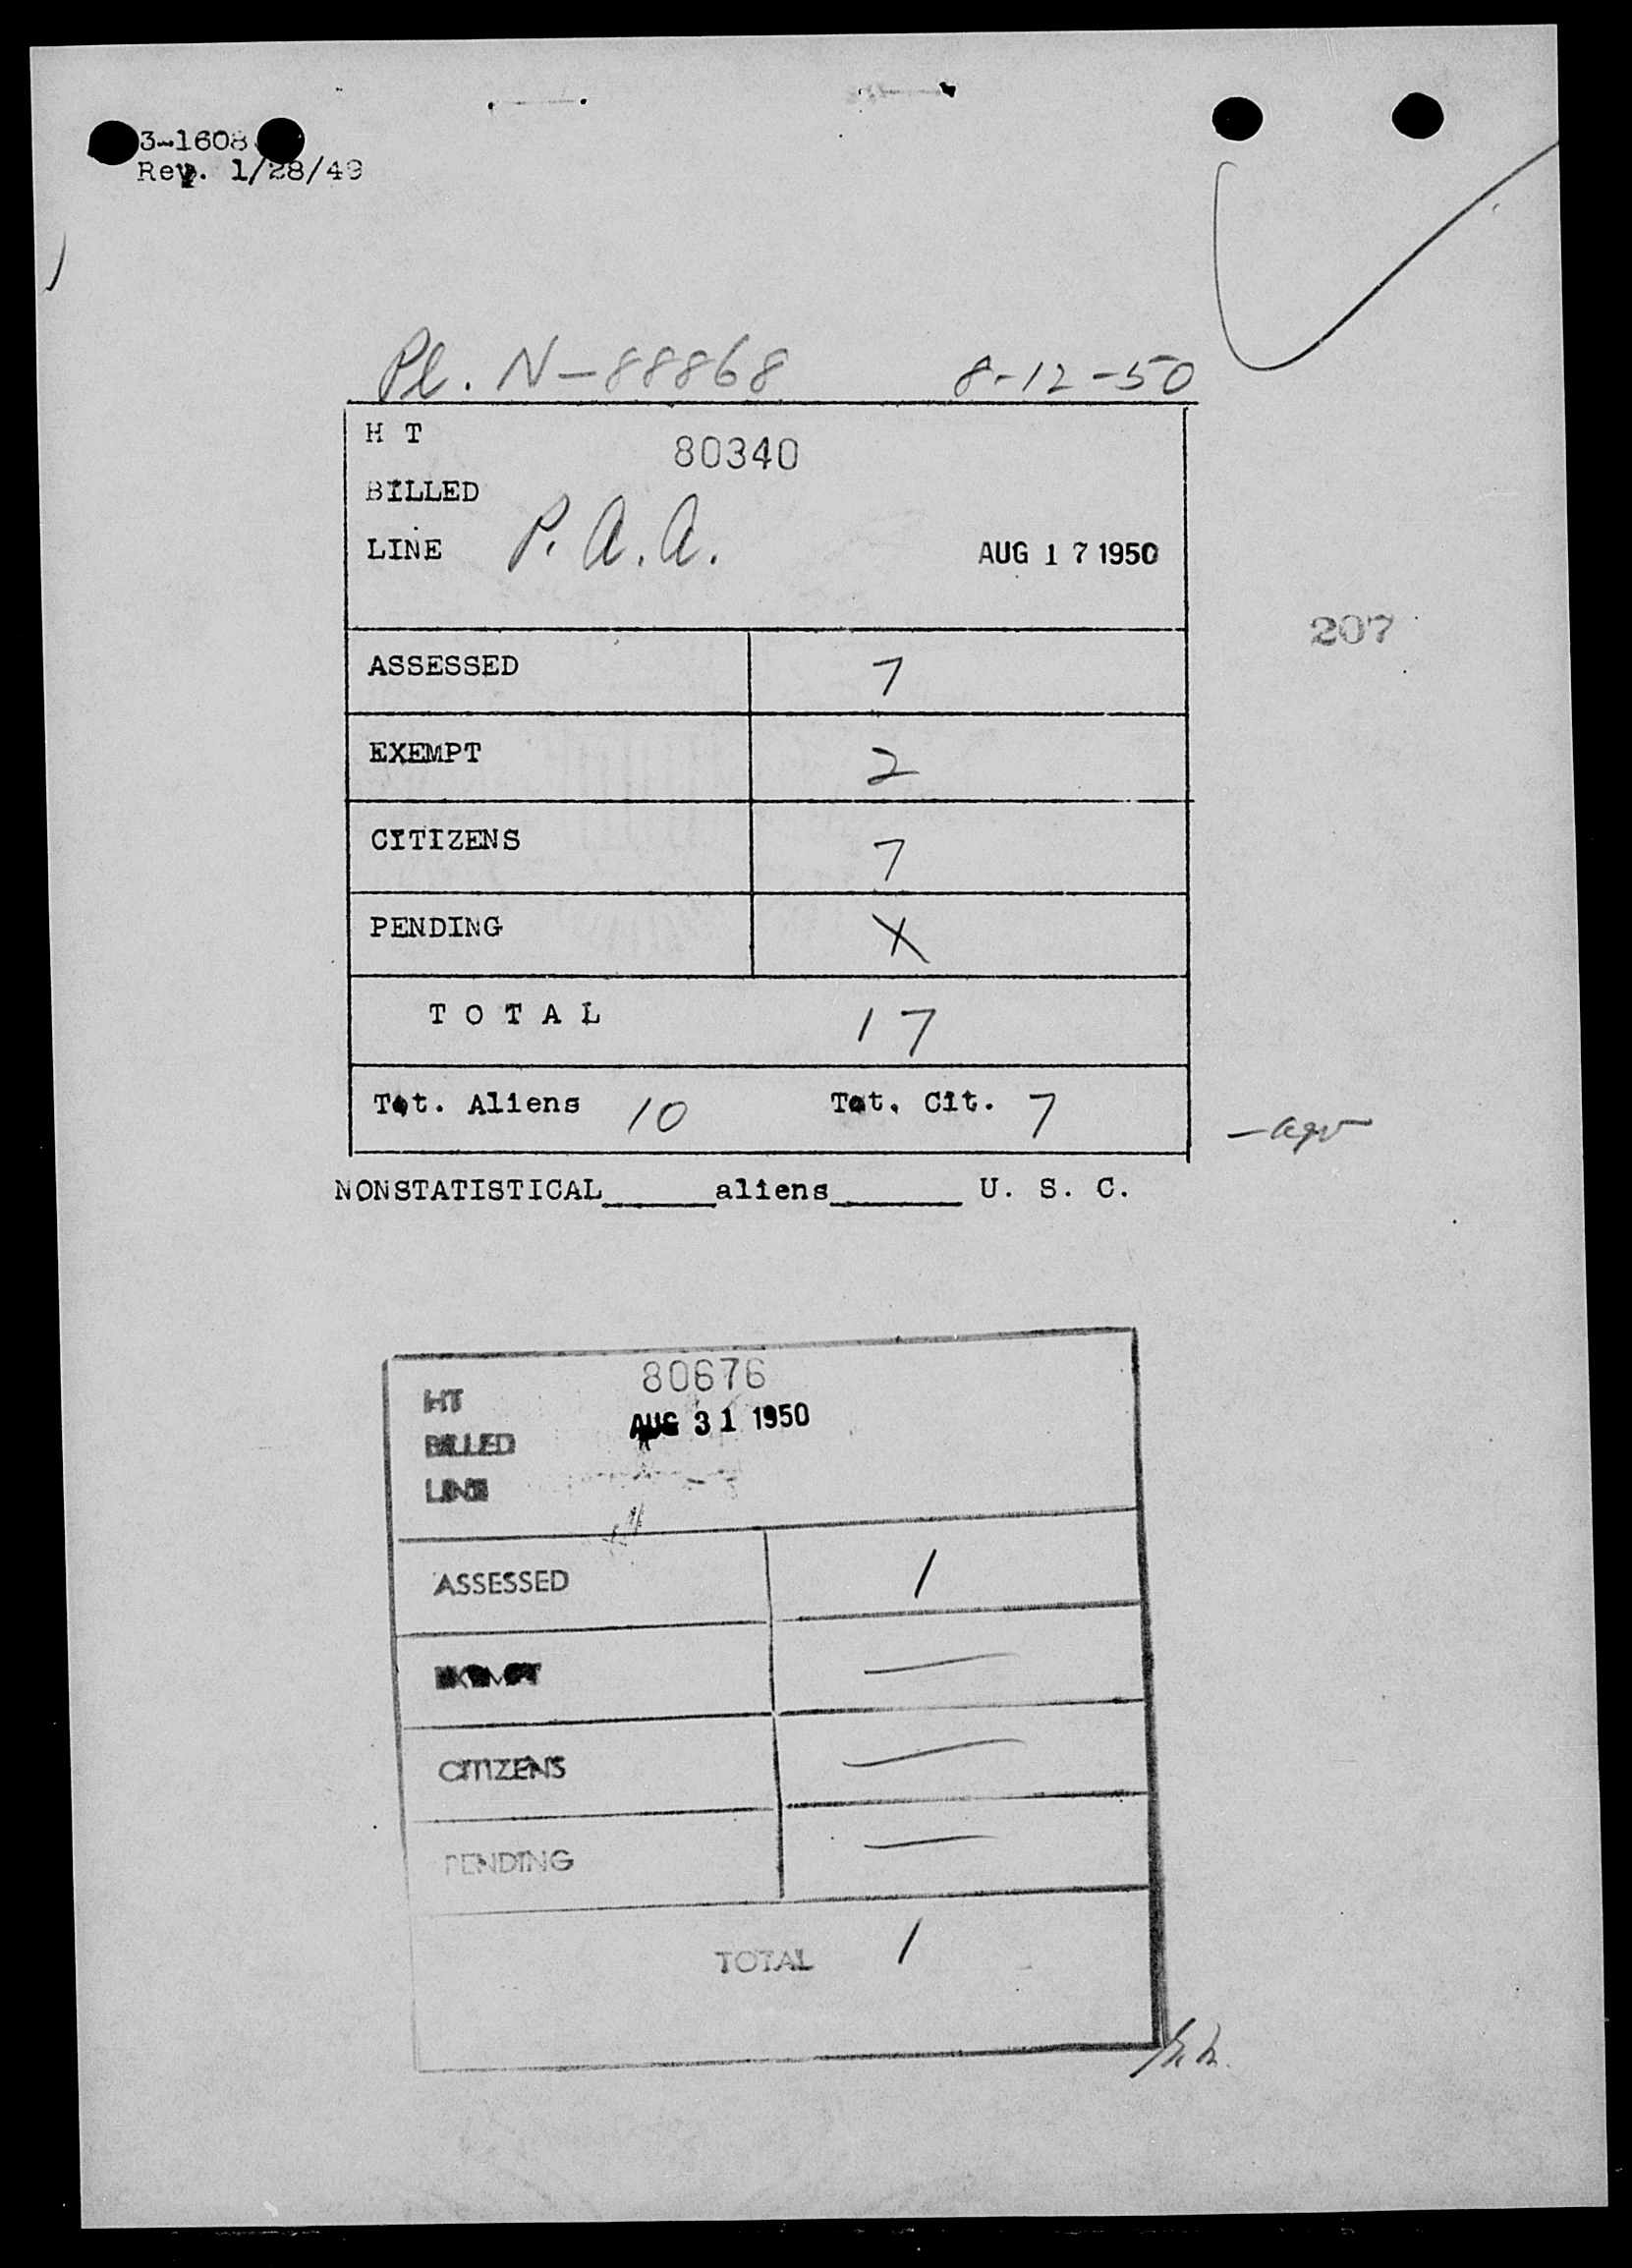 3-1608
Rev. 1/28/49
Pl. N-88868 8-12-50
H T 80340
BILLED
LINE P.A.A. AUG 17 1950
207
ASSESSED 7
EXEMPT 2
CITIZENS 7
PENDING X
TOTAL 17
Tot. Aliens 10 Tot. Cit. 7
NONSTATISTICAL______aliens_______ U. S. C.
80676
HT
AUG 31 1950
BILLED
LINE
ASSESSED 1
EXEMPT —
CITIZENS —
PENDING —
TOTAL 1